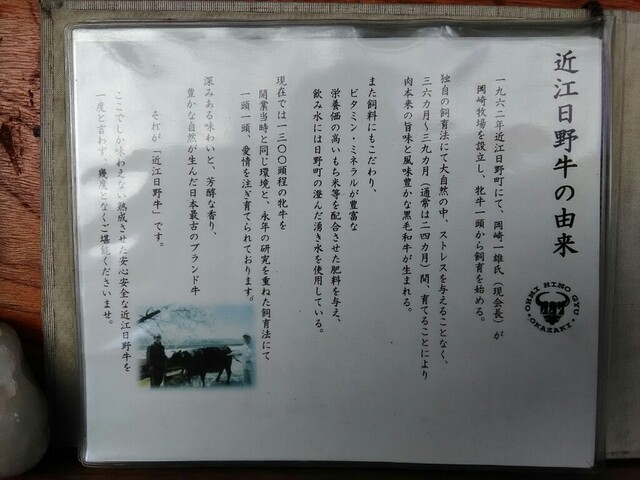 近江日野牛の由来
OHMI HINO GYU
・OKAZAKI・
一九六二年近江日野町にて、岡崎一雄氏（現会長）が
岡崎牧場を設立し、牝牛一頭から飼育を始める。
独自の飼育法にて大自然の中、ストレスを与えることなく、
三六カ月〜三九カ月（通常は二四カ月）間、育てることにより
肉本来の旨味と風味豊かな黒毛和牛が生まれる。
また飼料にもこだわり、
ビタミン・ミネラルが豊富な
栄養価の高いもち米等を配合させた肥料を与え、
飲み水には日野町の澄んだ湧き水を使用している。
現在では一三〇〇頭程の牝牛を
開業当時と同じ環境と、永年の研究を重ねた飼育法にて
一頭一頭、愛情を注ぎ育てられております。
深みある味わいと、芳醇な香り、
豊かな自然が生んだ日本最古のブランド牛
それが「近江日野牛」です。
ここでしか味わえない熟成させた安心安全な近江日野牛を
一度と言わず、幾度となくご堪能くださいませ。